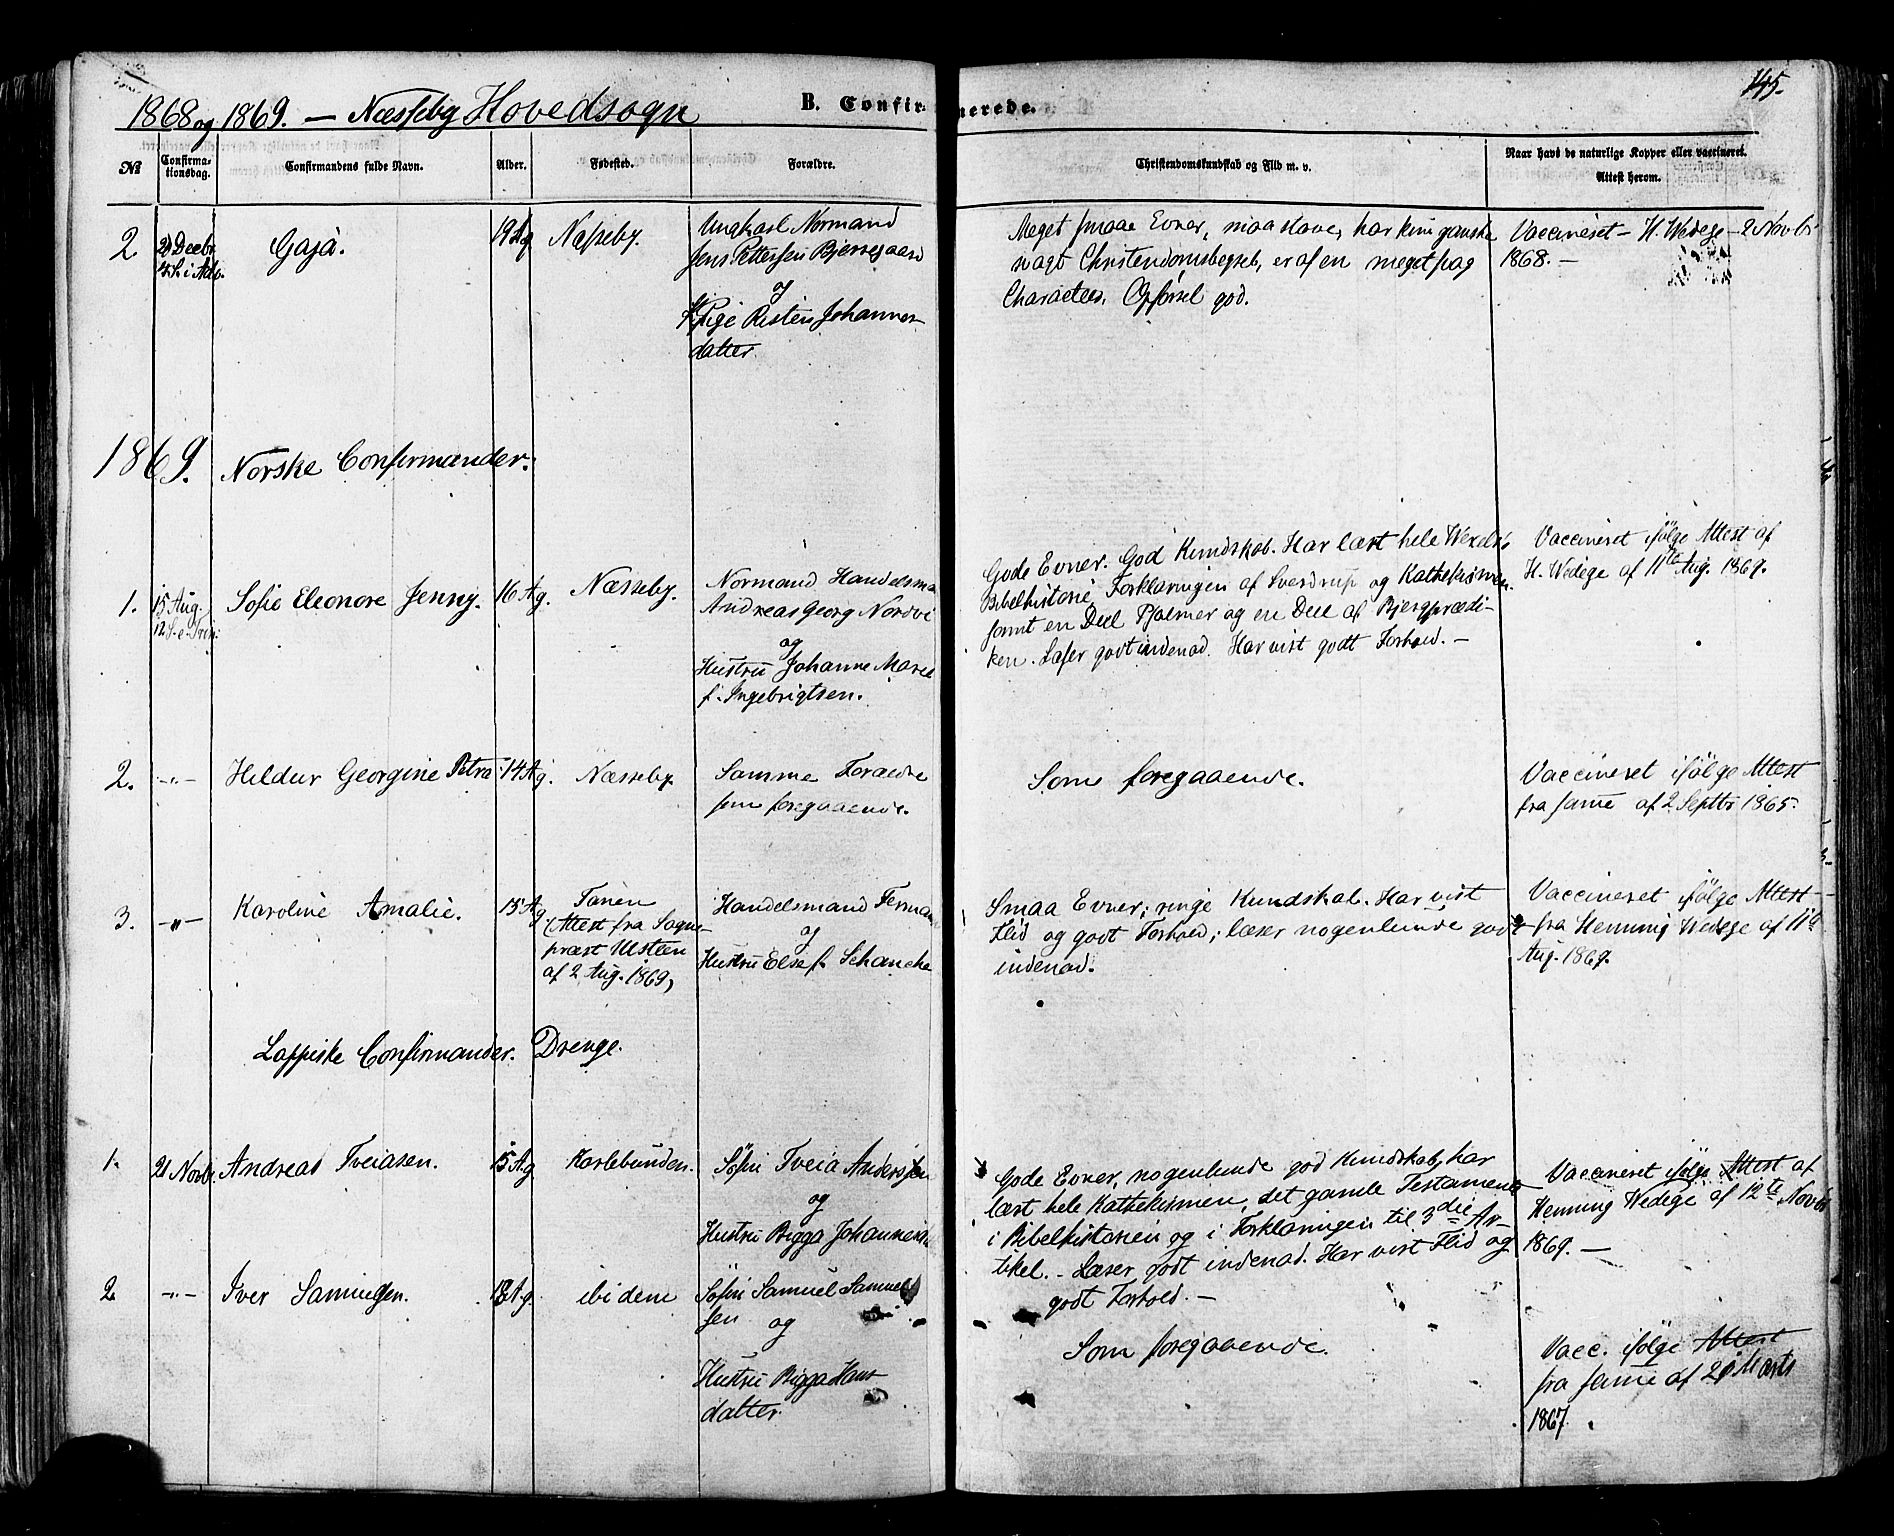 1868 og 1869. — Næsseby Hovedsogn
B. Confirmerede.
145.
№
Confirmationsdag.
Confirmandens fulde Navn.
Alder.
Fødested.
Forældre.
Christendomskundskab og Flid m. v.
Naar havt de naturlige Kopper eller vaccineret.
Attest herom.
2.
Gaja.
19 Ag
Næsseby.
Ungkarl Normand
Jens Pettersen Bjerregaard
og
Pige Risten Johannes-
datter.
Meget smaae Evner, maa stave, har kun ganske
svagt Christendomsbegreb, er af en meget svag
Character, Opførsel god.
Vaccineret – H. Wedege – 2 Novbr
1868. —
1869. Norske Confirmander.
1.
15 Aug.
12 S. e. Trin.
Sofie Eleonore Jenny.
16 Ag.
Næsseby.
Normand Handelsma
Andreas Georg Nordvi
og
Hustru Johanne Marie
f. Ingebrigtsen.
Gode Evner. God Kundskab. Har læst hele Wexels's
Bibelhistorie, Forklaringen af Sverdrup og Kathekismen.
samt en Deel Psalmer og en Deel af Bjergprædi-
ken. Læser godt indenad. Har vist godt Forhold. —
Vaccineret ifølge Attest af
H. Wedege af 11te Aug. 1869.
2.
—"—
Hildur Georgine Petra
14 Ag.
Næsseby
Samme Forældre
som foregaaende.
Som foregaaende.
Vaccineret ifølge Attest
fra samme af 2 Septbr 1865.
3.
—"—
Karoline Amalie.
15 Ag
Tanen
(Attest fra Sogne-
præst Ulsteen
af 2 Aug. 1869)
Handelsmand Ferman
og
Hustru Else f. Schancke
Smaa Evner; ringe Kundskab. Har vist
Flid og godt Forhold; læser nogenlunde godt
indenad.
Vaccineret ifølge Attest
fra Henning Wedege af 11te
Aug. 1869.
Lappiske Confirmander. Drenge.
1.
21 Novbr.
Andreas Iveiasen.
15 Ag
Karlebunden.
Søfin Iveia Andersen
og
Hustru Bigga Johannesd.
Gode Evner, nogenlunde god Kundskab, har
læst hele Kathekismen, det gamle Testamente
i Bibelhistorien og i Forklaringen til 3die Ar-
tikel. – Læser godt indenad. Har vist Flid og
godt Forhold. —
Vaccineret ifølge Attest af
Henning Wedege af 12te Novbr
1869. —
2
—"—
Iver
18 Ag.
ibidem
Søfin Samuel Samuel-
sen og
Hustru Bigga Hans-
datter.
Som foregaaende.
Vacc. ifølge Attest
fra samme af 21 Marts
1867.